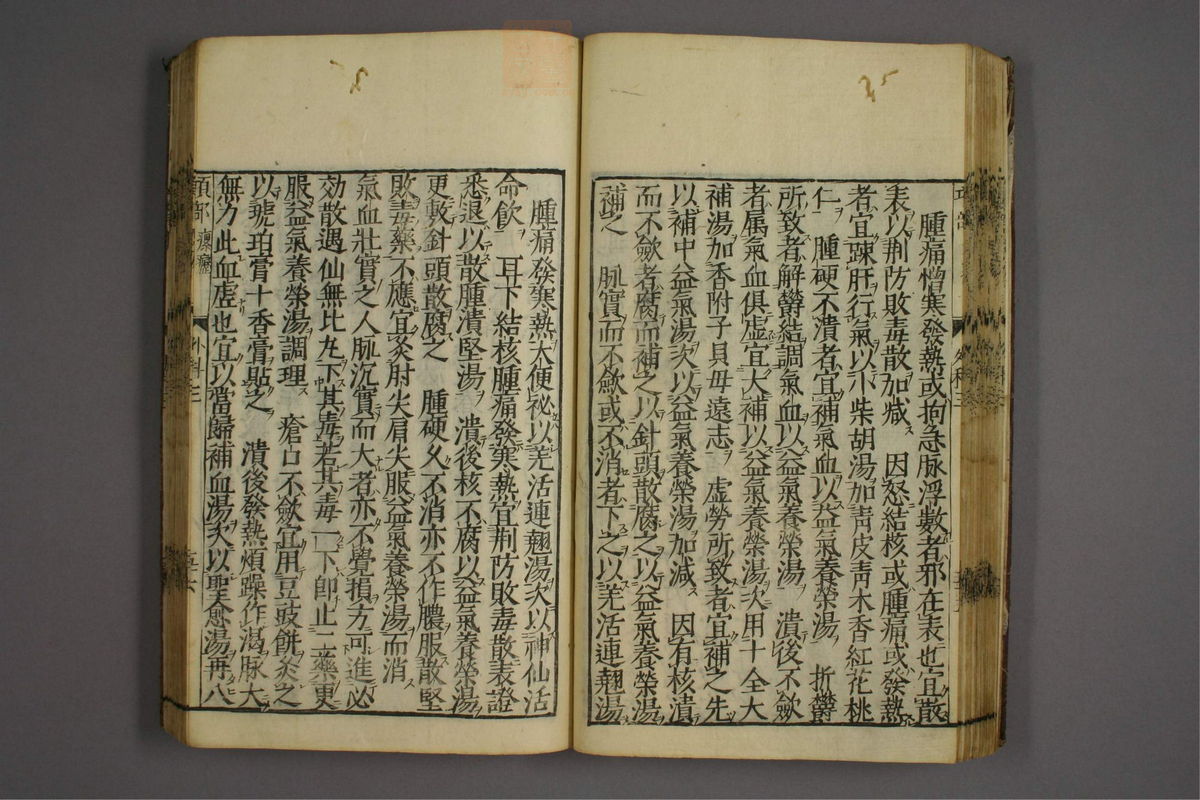 腫痛憎寒發熱或拘急脉浮數者邪在表也宜散
表以荆防敗毒散加減 因怒結核或腫痛或發熱
者宜踈肝行氣以小柴胡湯加靑皮靑木香紅花桃
仁 腫硬不潰者宜補氣血以益氣養榮湯 折欝
所致者解欝結調氣血以益氣養榮湯 潰後不斂
者属氣血俱虛宜大補以益氣養榮湯次用十全大
補湯加香附子貝母遠志 虛勞所致者宜補之先
以補中益氣湯次以益氣養榮湯加減 因有核潰
而不斂者腐而補之以針頭散腐之以益氣養榮湯
補之 脉實而不斂或不消者下之以羌活連翹湯
腫痛發寒熱大便祕以羌活連翹湯次以神仙活
命飮 耳下結核腫痛發寒熱宜荆防敗毒散表證
悉退以散腫潰堅湯 潰後核不腐以益氣養榮湯
更數針頭散腐之 腫硬久不消亦不作膿服散堅
敗毒藥不應宜灸肘尖肩尖服益氣養榮湯而消
氣血壯實之人脉沉實而大者亦不覺損方可進必
効散遇仙無比丸下其毒若其毒一下卽止二藥更
服益氣養榮湯調理 瘡口不斂宜用豆豉餅灸之
以琥珀膏十香膏貼之 潰後發熱煩躁作渴脉大
無力此血虛也宜以當歸補血湯又以聖愈湯再八
項部 瘰癧
外科三
五十六
外科三